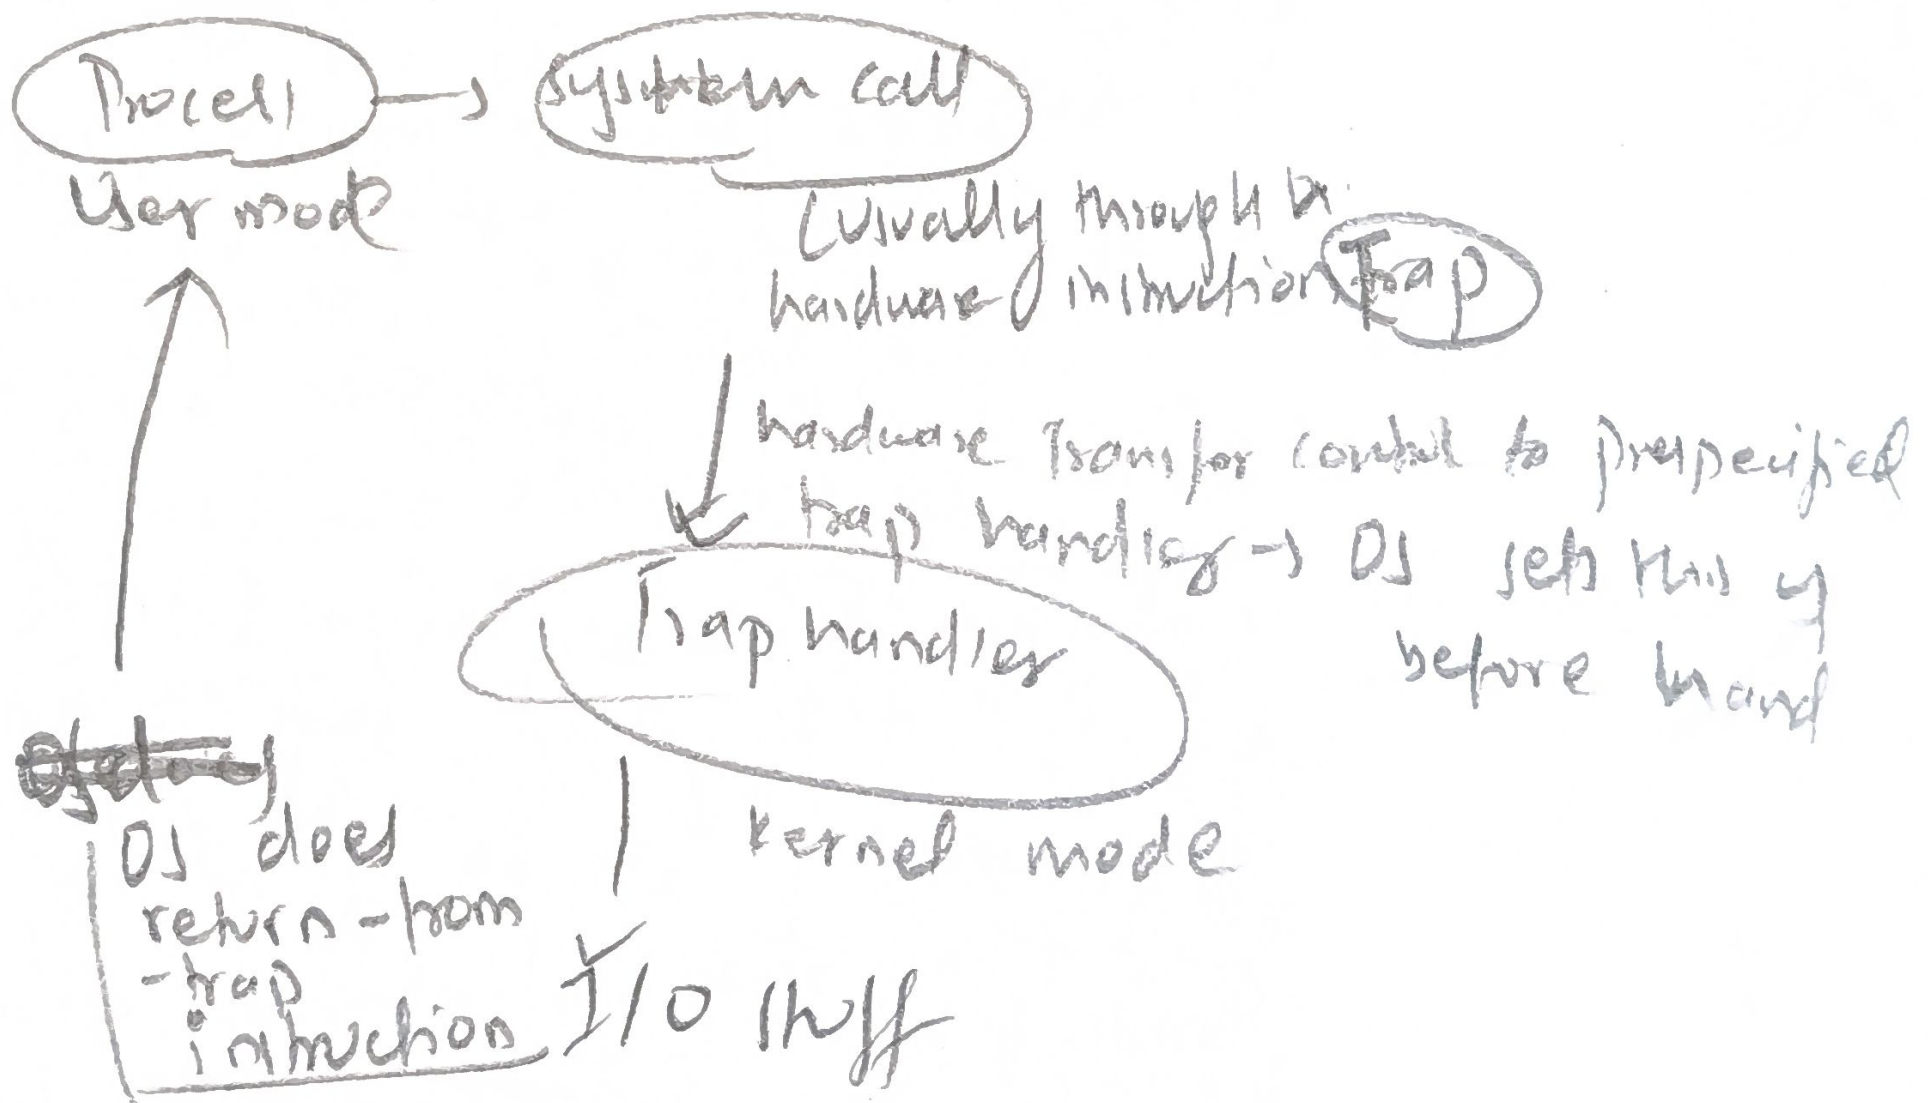 Process
system call
User mode
(usually through
hardware instruction Trap
hardware Transfer control to prespecified
trap handler → OS sets this up
before hand
Trap handler
kernel mode
OS does
return-from
-trap
instruction
I/O stuff